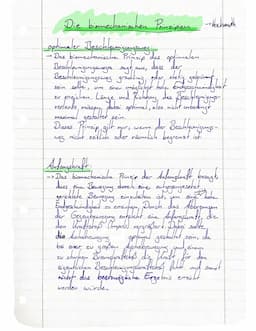 Die biomechanischen Prinzipien
optimaler Beschleunigungsweg
- Das biomechanische Prinzip des optimalen
Beschleunigungswegs sagt aus, dass der
Beschleunigungsweg gradlinig oder stetig gekrümmt
sein sollte, um eine möglichst hohe Endgeschwindigkeit
zu erzielen. Länge und Richtung des Beschleunigungs-
verlaufs müssen dabei optimal, also nicht unbedingt
maximal gestaltet sein.
Dieses Prinzip gilt nur, wenn der Beschleunigungs-
weg nicht zeitlich oder räumlich begrenzt ist.
Anfangskraft
- Das biomechanische Prinzip der Anfangskraft besagt,
dass eine Bewegung durch eine entgegengesetzt
gerichtete Bewegung einzuleiten ist, um eine hohe
Endgeschwindigkeit zu erreichen. Durch das Abbremsen
der Gegenbewegung entsteht eine Anfangskraft, die
den Kraftstoß (Impuls) vergrößert. Dabei sollte
die optimal gestaltet sein, da
bei einer zu großen und einem
zu starken die Kraft für den
eigentlichen fehlt und somit
nicht das bestmögliche Ergebnis erreicht
werden würde.